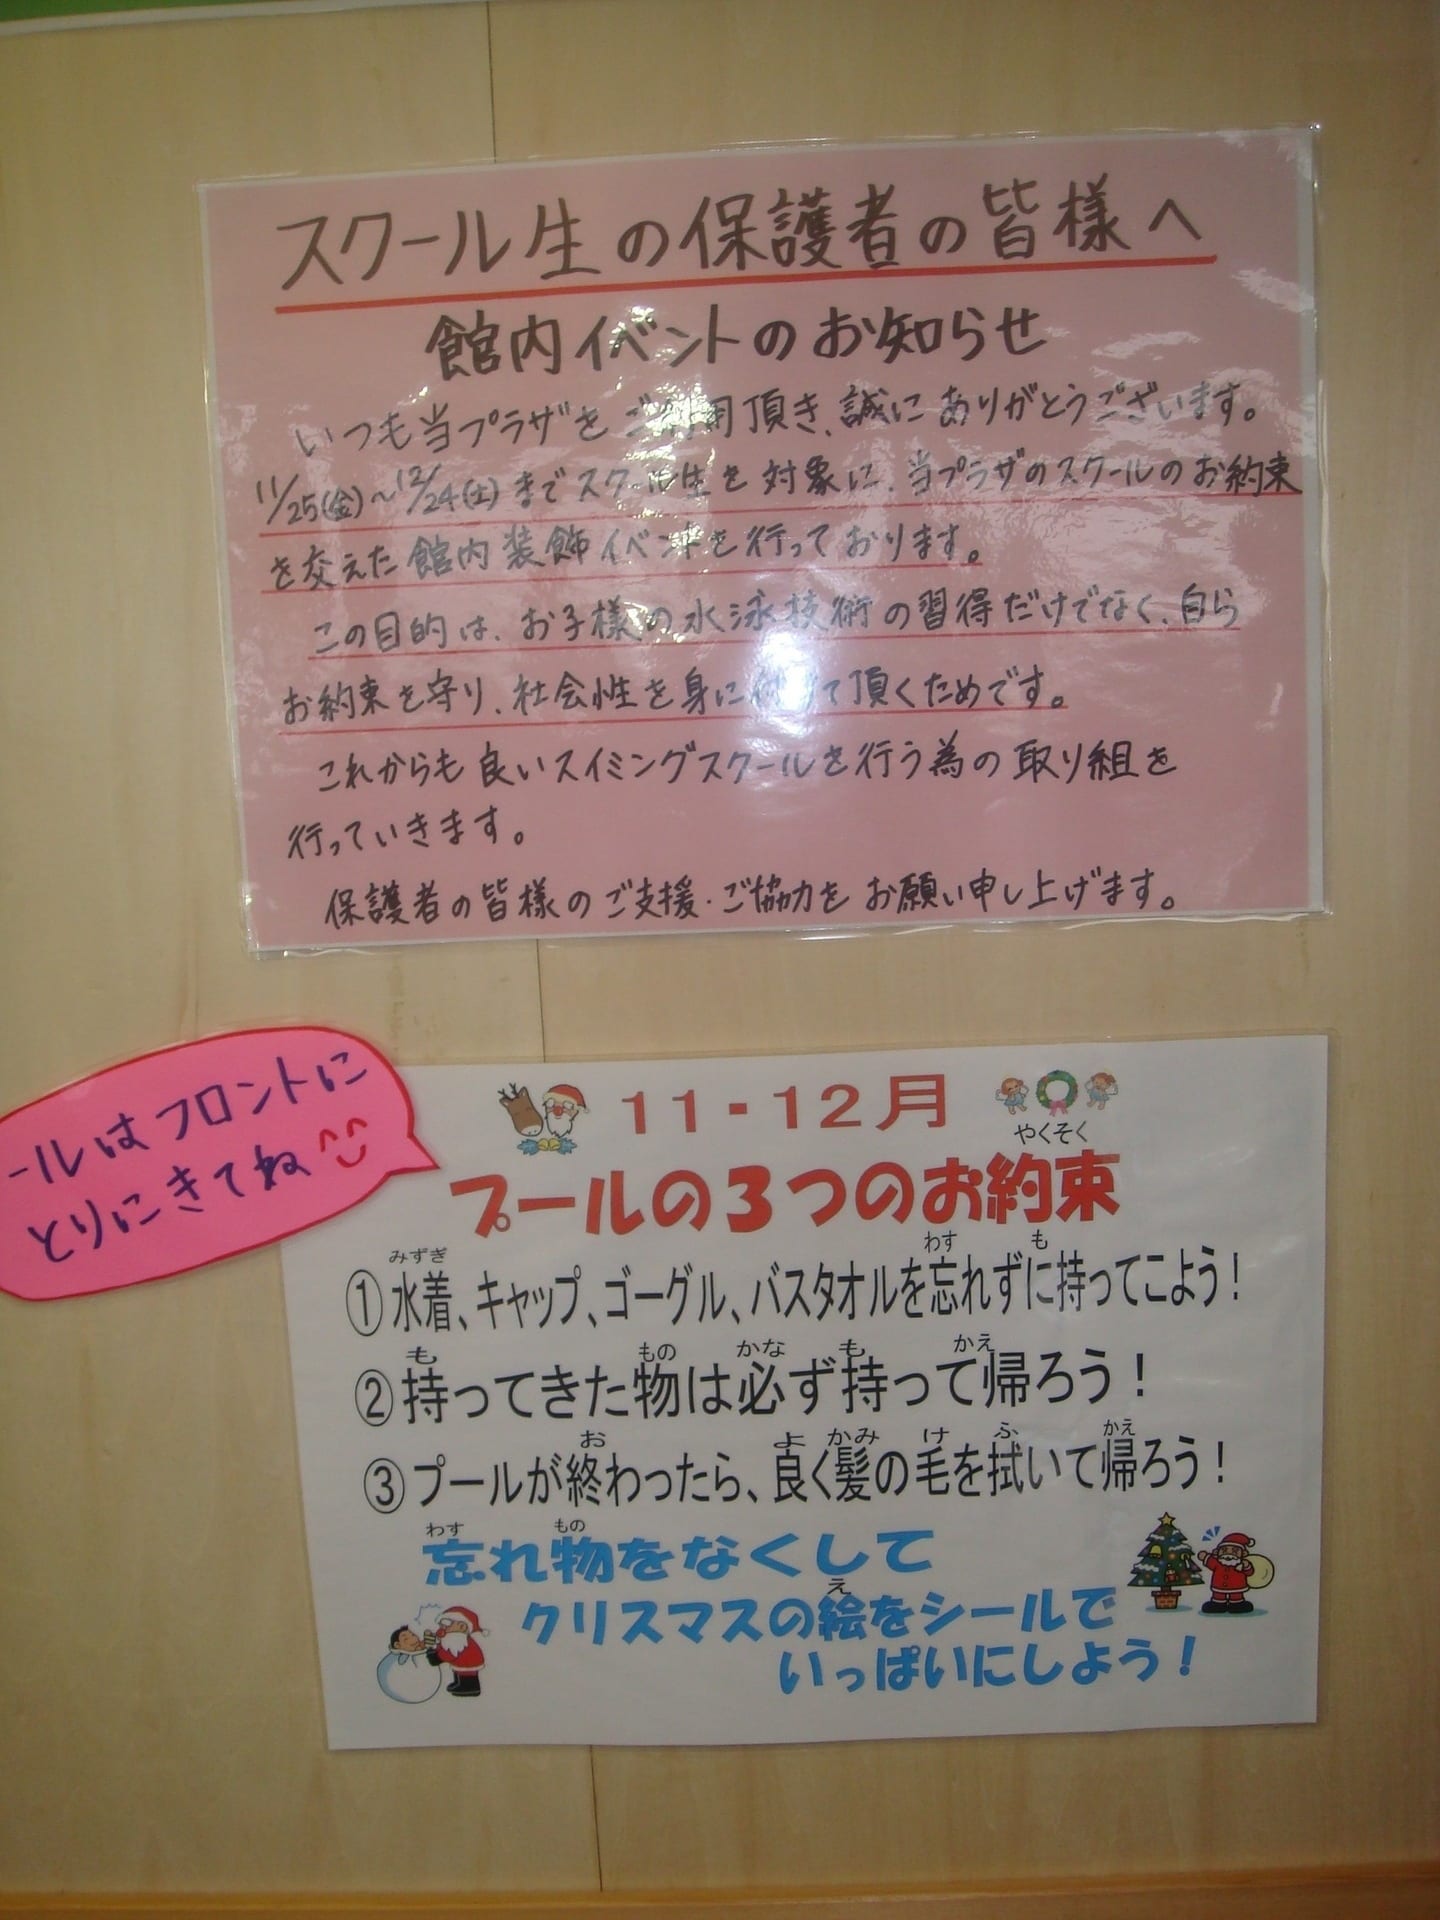 スクール生の保護者の皆様へ
館内イベントのお知らせ
いつも当プラザをご利用頂き、誠にありがとうございます。
11/25(金)〜12/24(土)までスクール生を対象に、当プラザのスクールのお約束
を交えた館内装飾イベントを行っております。
この目的は、お子様の水泳技術の習得だけでなく、自ら
お約束を守り、社会性を身に付けて頂くためです。
これからも良いスイミングスクールを行う為の取り組を
行っていきます。
保護者の皆様のご支援・ご協力をお願い申し上げます。
ールはフロントに
とりにきてね
11-12月
やくそく
プールの3つのお約束
みずぎ わす も
①水着、キャップ、ゴーグル、バスタオルを忘れずに持ってこよう!
も もの かな も かえ
②持ってきた物は必ず持って帰ろう!
お よ かみ け ふ かえ
③プールが終わったら、良く髪の毛を拭いて帰ろう!
わす もの
忘れ物をなくして
え
クリスマスの絵をシールで
いっぱいにしよう!